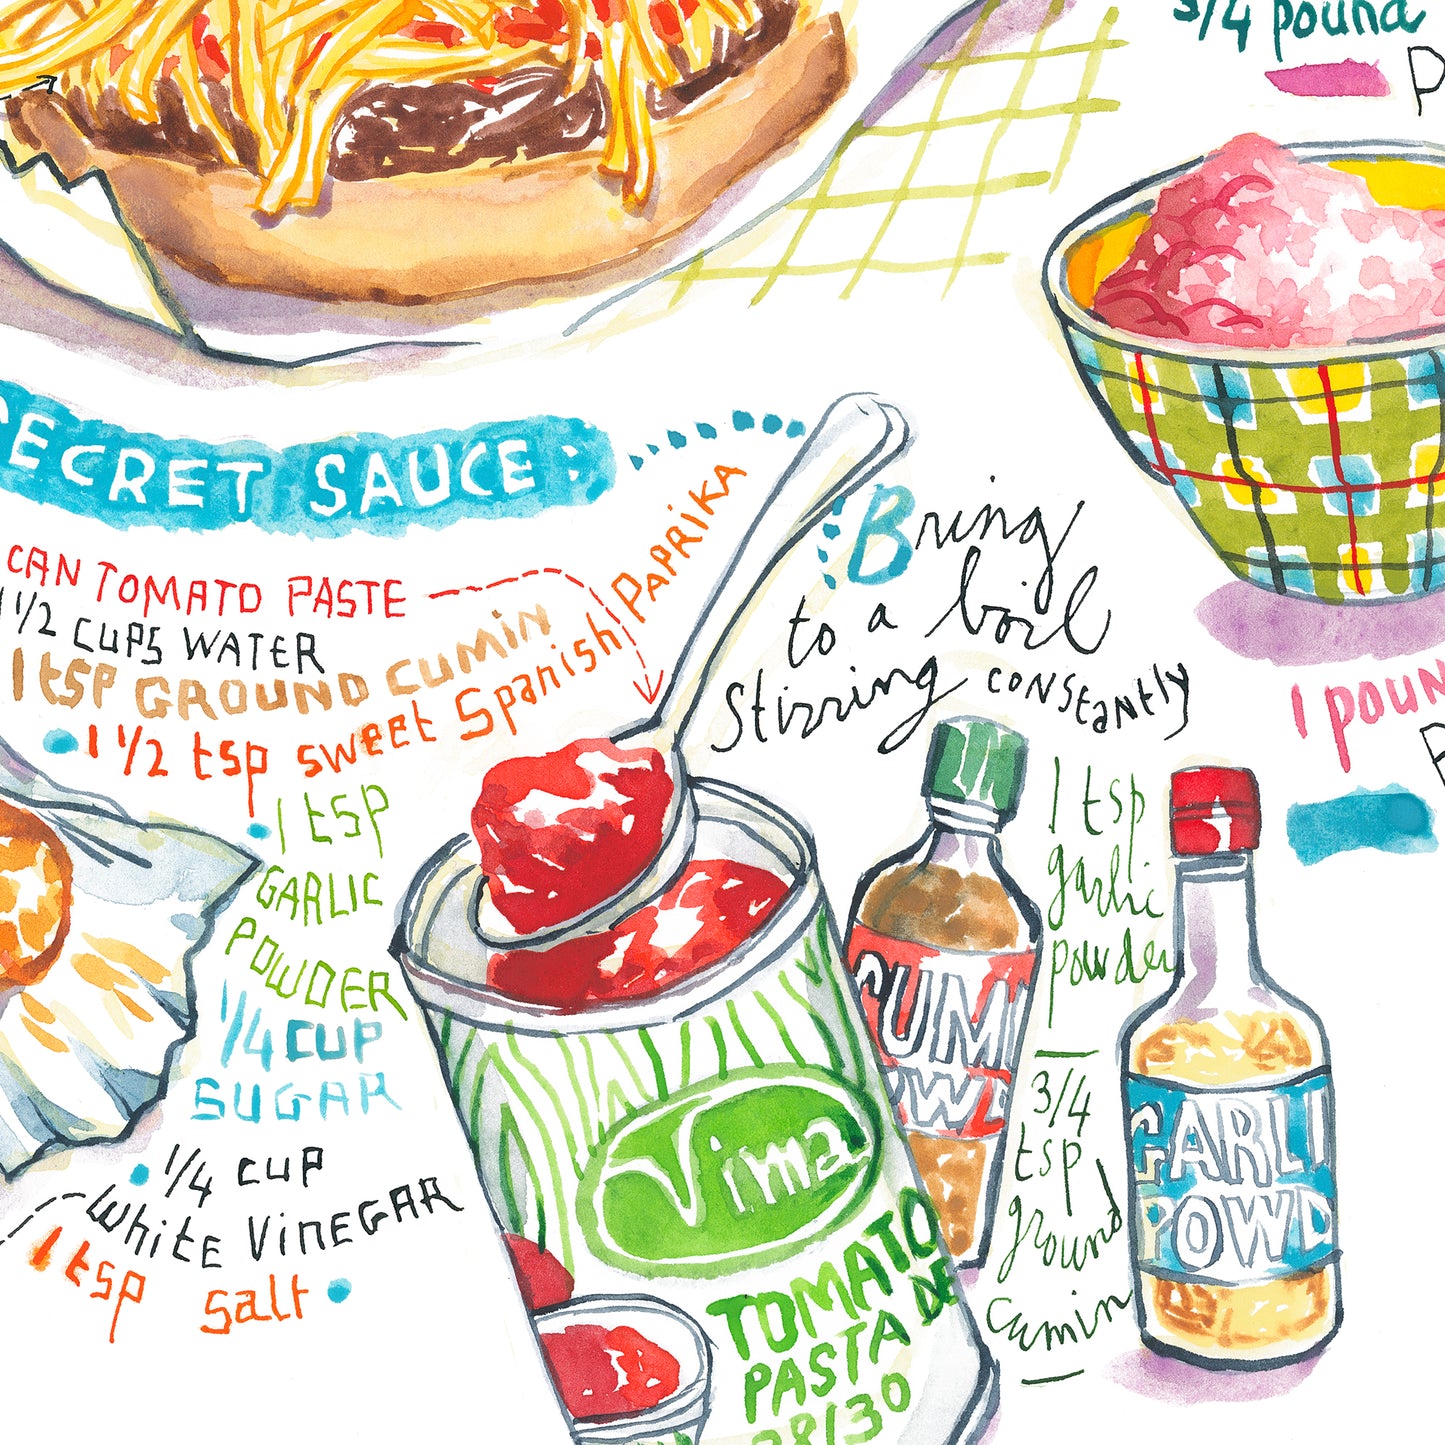 3/4 pound
SECRET SAUCE:
CAN TOMATO PASTE
1 1/2 CUPS WATER
1 tSP GROUND CUMIN
1 1/2 tsp sweet Spanish PAPRIKA
1 tSP
GARLIC
POWDER
1/4 CUP
SUGAR
1/4 CUP
White VINEGAR
1 tsp salt
Bring
to a boil
Stirring constantly
1 tsp
garlic
powder
3/4
tsp
ground
cumin
1 poun
CUMI
POWD
GARLI
POWD
Vima
TOMATO
PASTA DE
28/30